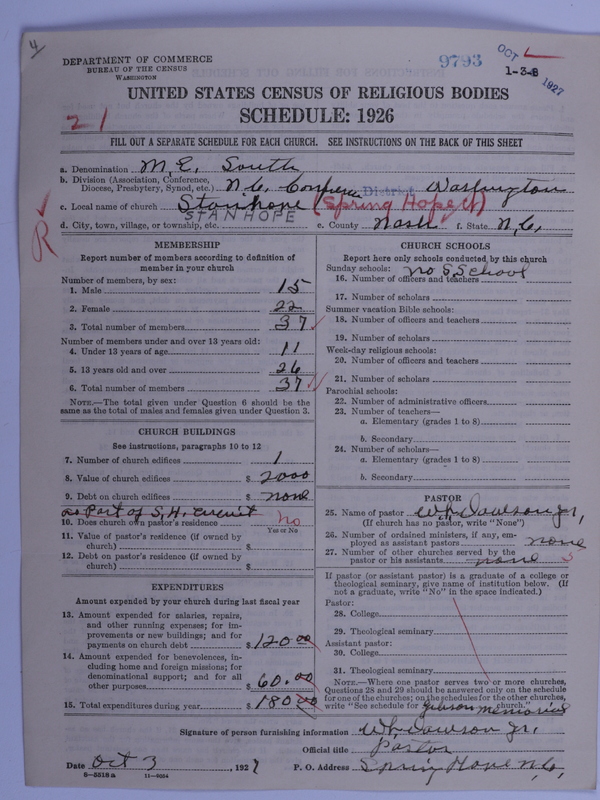 4
DEPARTMENT OF COMMERCE
BUREAU OF THE CENSUS
WASHINGTON
9793
OCT
1-3-8
1927
UNITED STATES CENSUS OF RELIGIOUS BODIES
SCHEDULE: 1926
21
FILL OUT A SEPARATE SCHEDULE FOR EACH CHURCH. SEE INSTRUCTIONS ON THE BACK OF THIS SHEET
a. Denomination M.E. South
b. Division (Association, Conference, Diocese, Presbytery, Synod, etc.) N.C. Conference District Washington
c. Local name of church Stanhope (Spring Hope Ct)
STANHOPE
d. City, town, village, or township, etc. e. County Nash f. State N.C.
R
MEMBERSHIP
Report number of members according to definition of
member in your church
Number of members, by sex:
1. Male 15
2. Female 22
3. Total number of members 37
Number of members under and over 13 years old:
4. Under 13 years of age 11
5. 13 years old and over 26
6. Total number of members 37
NOTE.—The total given under Question 6 should be the
same as the total of males and females given under Question 3.
CHURCH BUILDINGS
See instructions, paragraphs 10 to 12
7. Number of church edifices 1
8. Value of church edifices $ 2000
9. Debt on church edifices $ none
as Part of S.H. Circuit
10. Does church own pastor's residence No
Yes or No
11. Value of pastor's residence (if owned by
church) $
12. Debt on pastor's residence (if owned by
church) $
EXPENDITURES
Amount expended by your church during last fiscal year
13. Amount expended for salaries, repairs,
and other running expenses; for im-
provements or new buildings; and for
payments on church debt $ 120.00
14. Amount expended for benevolences, in-
cluding home and foreign missions; for
denominational support; and for all
other purposes $ 60.00
15. Total expenditures during year $ 180.00
CHURCH SCHOOLS
Report here only schools conducted by this church
Sunday schools: no S. School
16. Number of officers and teachers
17. Number of scholars
Summer vacation Bible schools:
18. Number of officers and teachers
19. Number of scholars
Week-day religious schools:
20. Number of officers and teachers
21. Number of scholars
Parochial schools:
22. Number of administrative officers
23. Number of teachers—
a. Elementary (grades 1 to 8)
b. Secondary
24. Number of scholars—
a. Elementary (grades 1 to 8)
b. Secondary
PASTOR
25. Name of pastor Wh Dawson Jr,
(If church has no pastor, write "None")
26. Number of ordained ministers, if any, em-
ployed as assistant pastors none
27. Number of other churches served by the
pastor or his assistants none 5
If pastor (or assistant pastor) is a graduate of a college or
theological seminary, give name of institution below. (If
not a graduate, write "No" in the space indicated.)
Pastor:
28. College
29. Theological seminary
Assistant pastor:
30. College
31. Theological seminary
NOTE.—Where one pastor serves two or more churches,
Questions 28 and 29 should be answered only on the schedule
for one of the churches; on the schedules for the other churches,
write "See schedule for Gibson Memorial church."
Signature of person furnishing information Wh Dawson Jr,
Official title Pastor
Date Oct 3, 1927 P. O. Address Spring Hope N.C.
8—5518a 11—9054